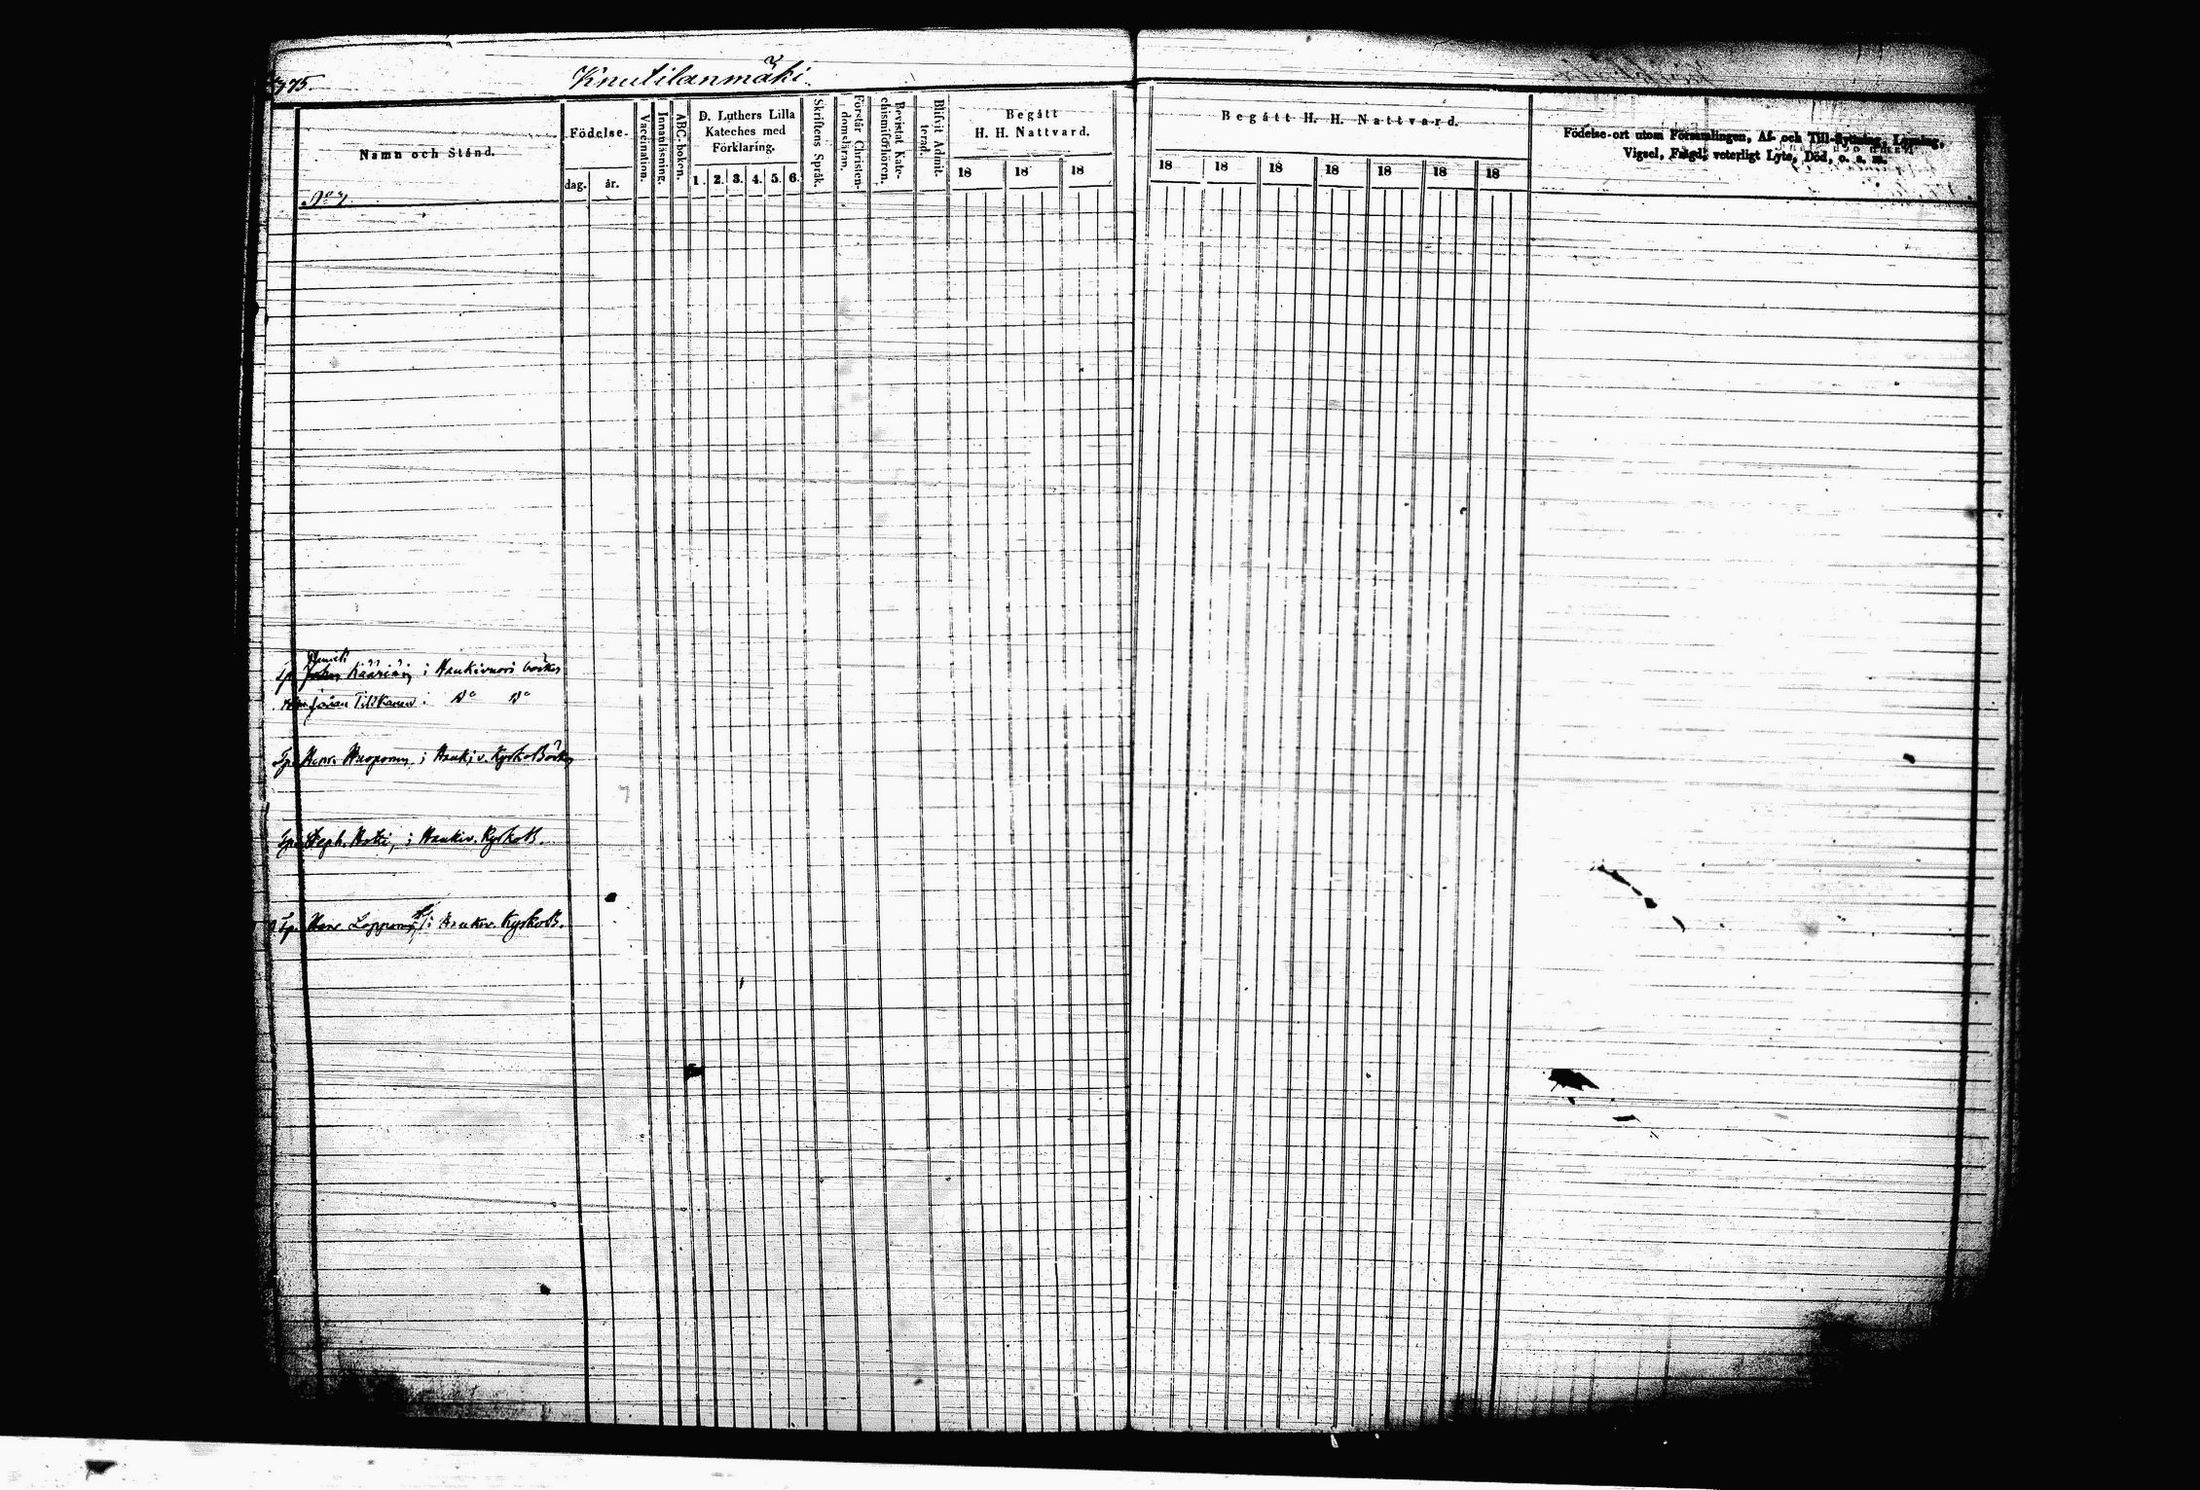 375.
Knutilanmäki.
Namn och Stånd.
No 7.
Födelse-
dag.
år.
Vaccination.
Innanläsning.
ABC-boken.
D. Luthers Lilla
Kateches med
Förklaring.
1. 2. 3. 4. 5. 6.
Skriftens Språk.
Förstår Christen-
domsläran.
Bevistat Kate-
chismiförhören.
Blifvit Admit-
terad.
Begått
H. H. Nattvard.
18 18 18
Begått H. H. Nattvard.
18 18 18 18 18 18 18
Födelse-ort utom Församlingen, Af- och Till-flyttning, Lysning,
Vigsel, Frägd, veterligt Lyte, Död, o. s. m.
Kääriäin i Haukivuori
Göran Tiilikainen i Do Do
Henr. i Haukiv. Kyrko Böcker
Steph. i Haukiv. KyrkoB.
Henr i Haukiv. KyrkoB.